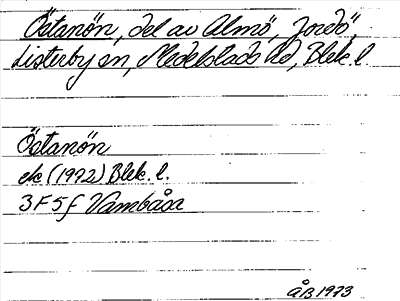 Östanön, del av Almö, Jordö,
Listerby sn, Medelstads hd, Blek. l
Östanön
ek (1972) Blek. l.
3F5f Vambåsa
ÅB 1973